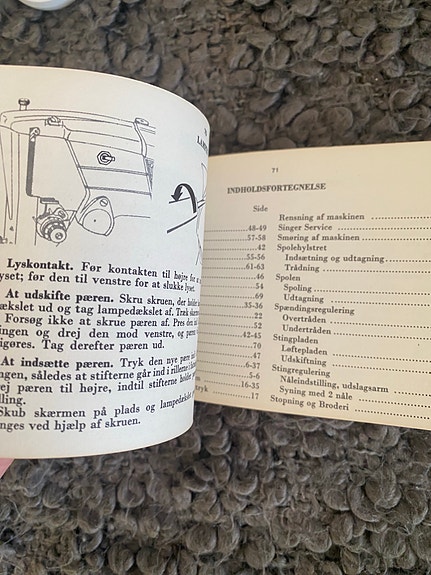 LA
Lyskontakt. Før kontakten til højre for at
lyset; før den til venstre for at slukke lyset.
At udskifte pæren. Skru skruen, der holder
ækslet ud og tag lampedækslet af. Træk skærmen
Forsøg ikke at skrue pæren af. Pres den ind
ingen og drej den mod venstre, og pæren
igøres. Tag derefter pæren ud.
At indsætte pæren. Tryk den nye pære ind
ingen, således at stifterne går ind i rillerne i
ej pæren til højre, indtil stifterne holder
lling.
Skub skærmen på plads og lampedækslet
nges ved hjælp af skruen.
71
INDHOLDSFORTEGNELSE
Side
48-49
57-58
42
55-56
61-63
46
54
69
35-36
22
52
42-45
70
47
6-37
5-6
tryk 16-35
17
Rensning af maskinen
Singer Service
Smøring af maskinen
Spolehylstret
Indsætning og udtagning
Trådning
Spolen
Spoling
Udtagning
Spændingsregulering
Overtråden
Undertråden
Stingpladen
Løftepladen
Udskiftning
Stingregulering
Nåleindstilling, udslagsarm
Syning med 2 nåle
Stopning og Broderi